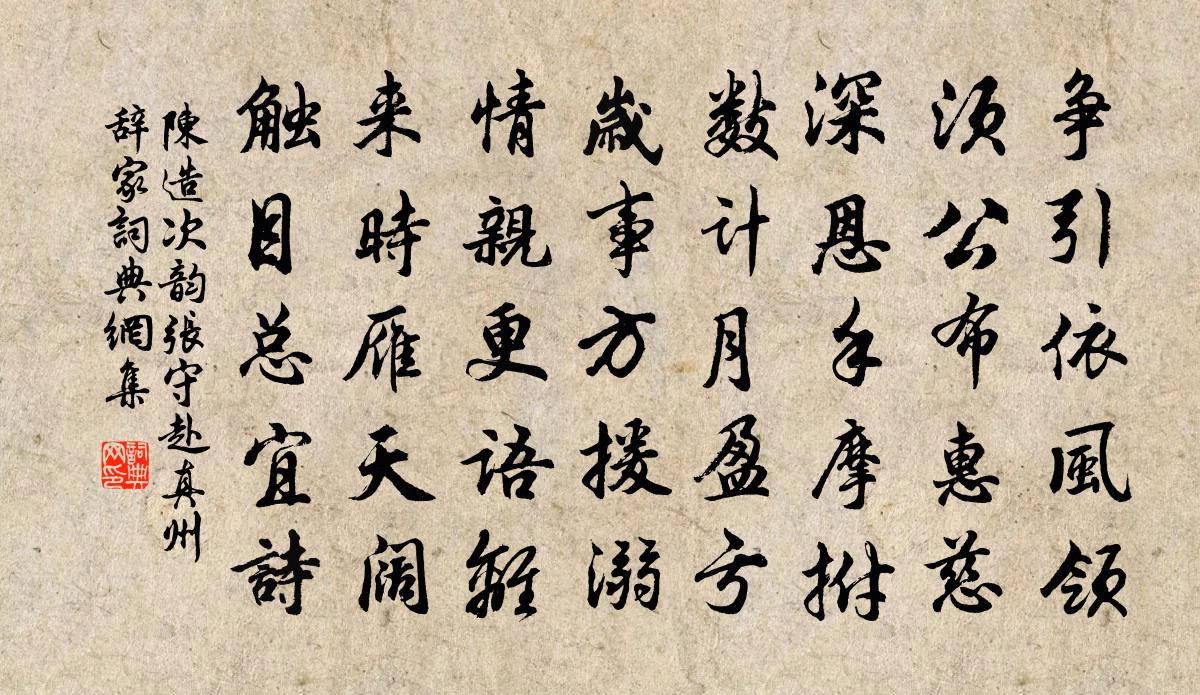 争引依風領
須公布惠慈
深恩手摩拊
数计月盈亏
歲事方援溺
情親更语離
来時雁天阔
触目总宜詩
陳造次韵張守赴真州
辞家詞典網集
詞典网印